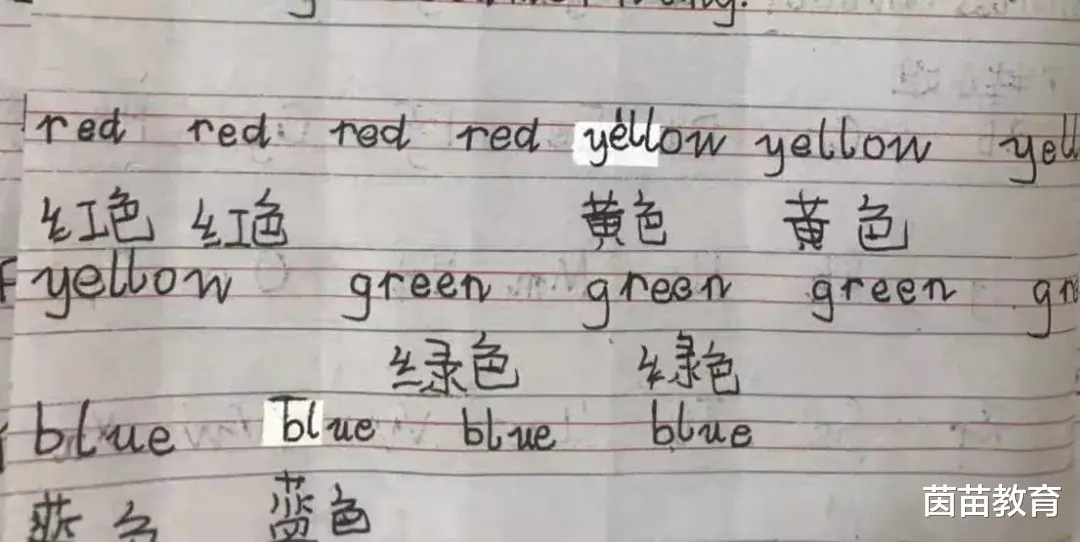 red red red red yellow yellow yell
红色 红色 黄色 黄色
yellow green green green gr
绿色 绿色
blue blue blue blue
蓝色
茵苗教育